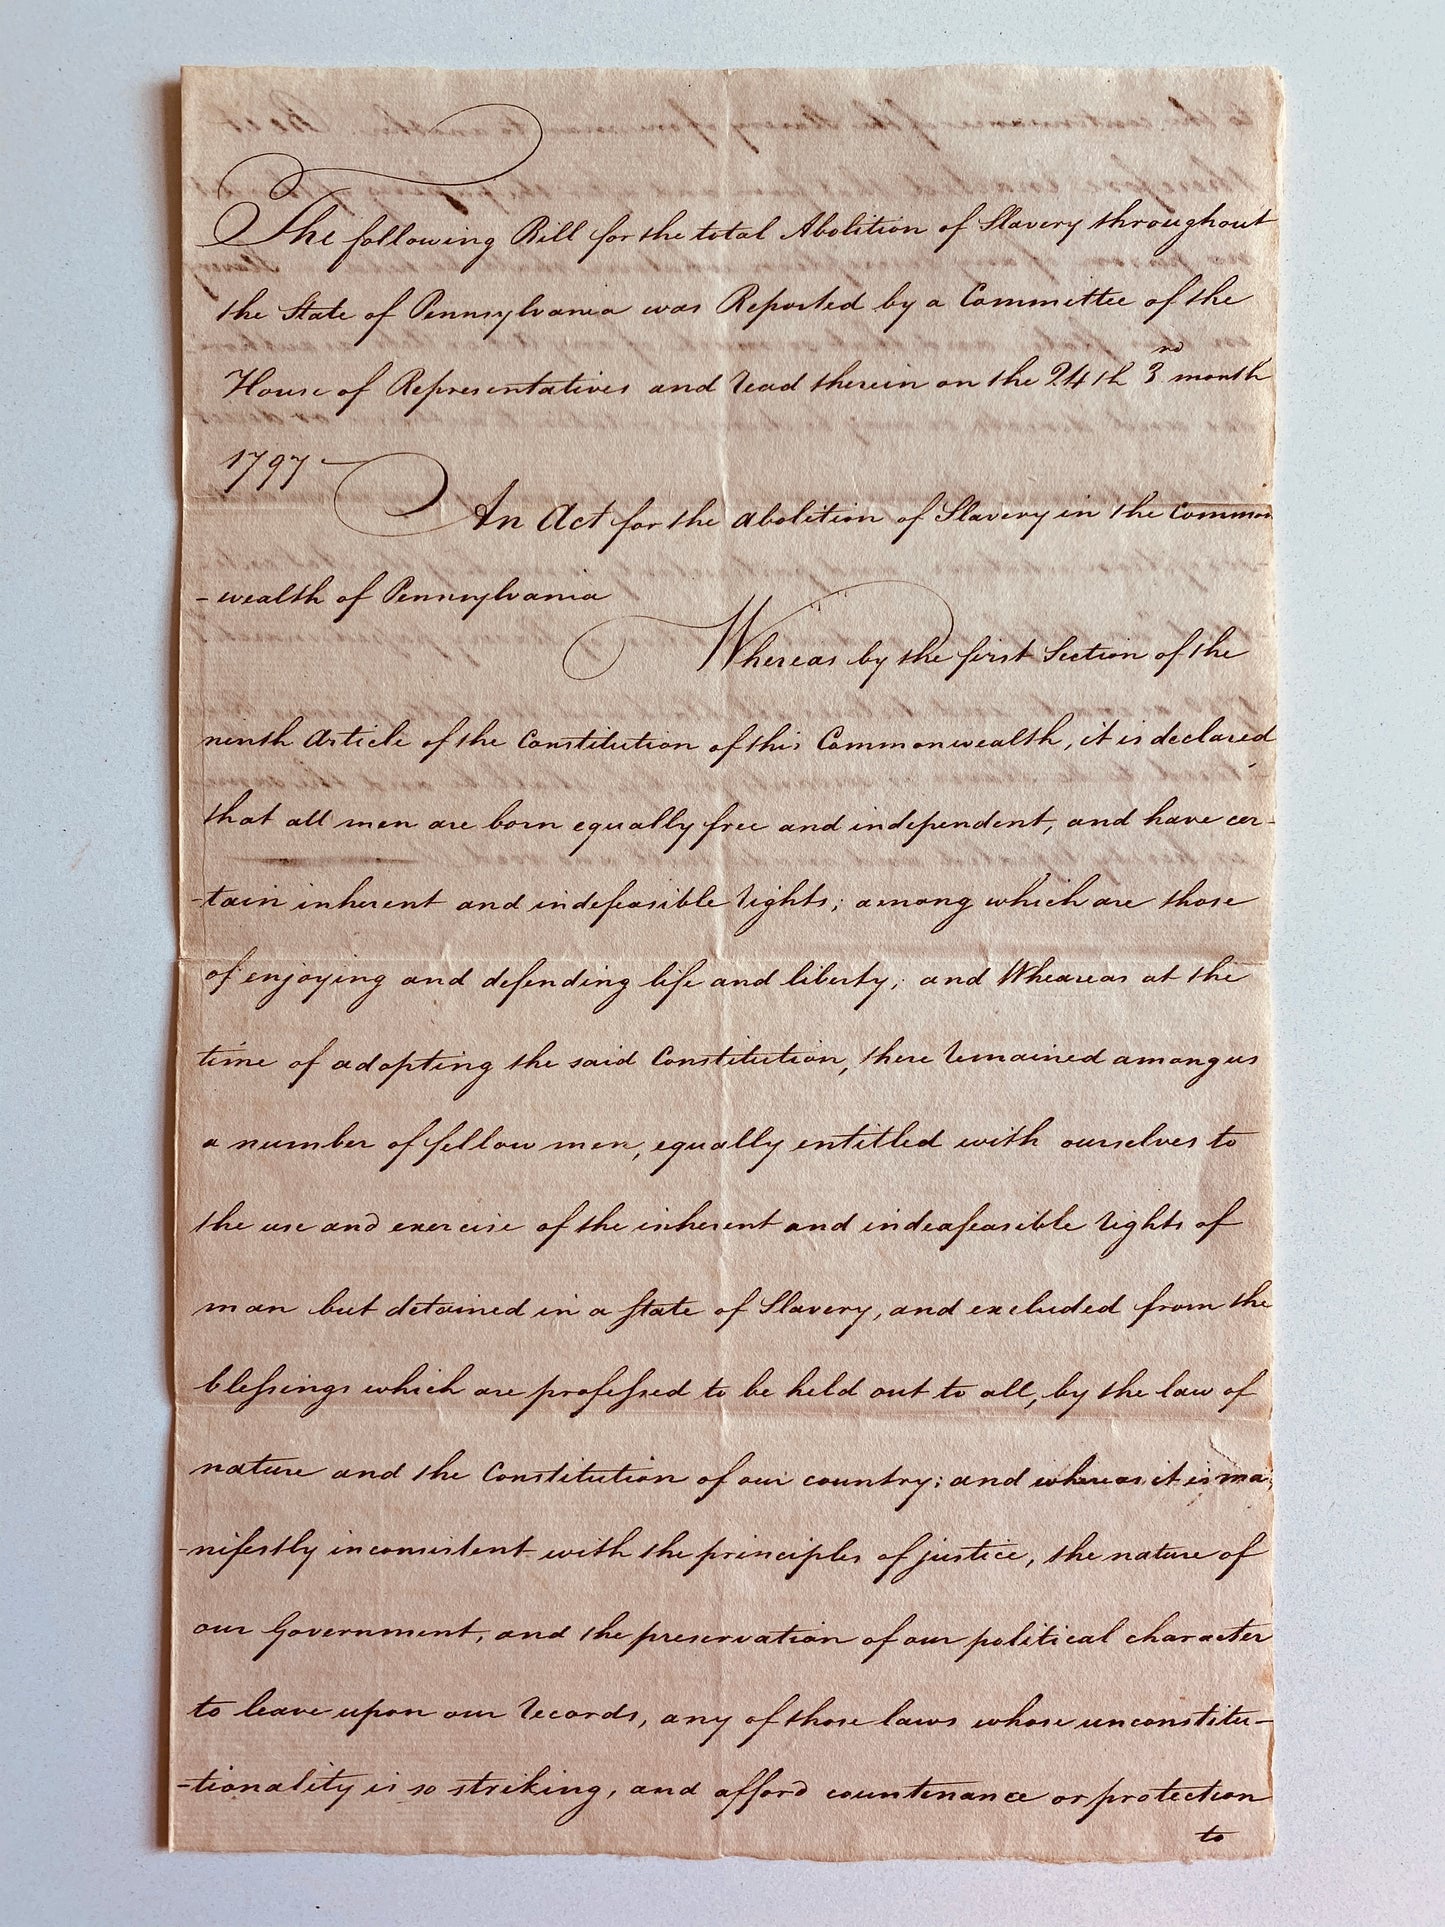 The following Bill for the total Abolition of Slavery throughout
the State of Pennsylvania was Reported by a Committee of the
House of Representatives and read therein on the 24th 3rd month
1797
An Act for the abolition of Slavery in the Common
-wealth of Pennsylvania
Whereas by the first Section of the
ninth Article of the Constitution of this Commonwealth, it is declared
that all men are born equally free and independent, and have cer-
-tain inherent and indefeasible rights; among which are those
of enjoying and defending life and liberty; and Wheareas at the
time of adopting the said Constitution, there remained among us
a number of fellow men, equally entitled with ourselves to
the use and exercise of the inherent and indeafeasible rights of
man but detained in a State of Slavery, and excluded from the
blessings which are professed to be held out to all, by the law of
nature and the Constitution of our country; and whereas it is ma-
-nifestly inconsistent with the principles of justice, the nature of
our Government, and the preservation of our political character
to leave upon our records, any of those laws whose unconstitu-
-tionality is so striking, and afford countenance or protection
to